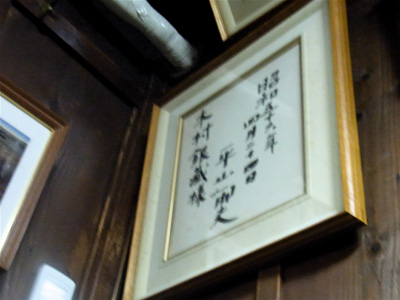 昭和五十九年
四月二十四日
平山郁夫
木村銀蔵様